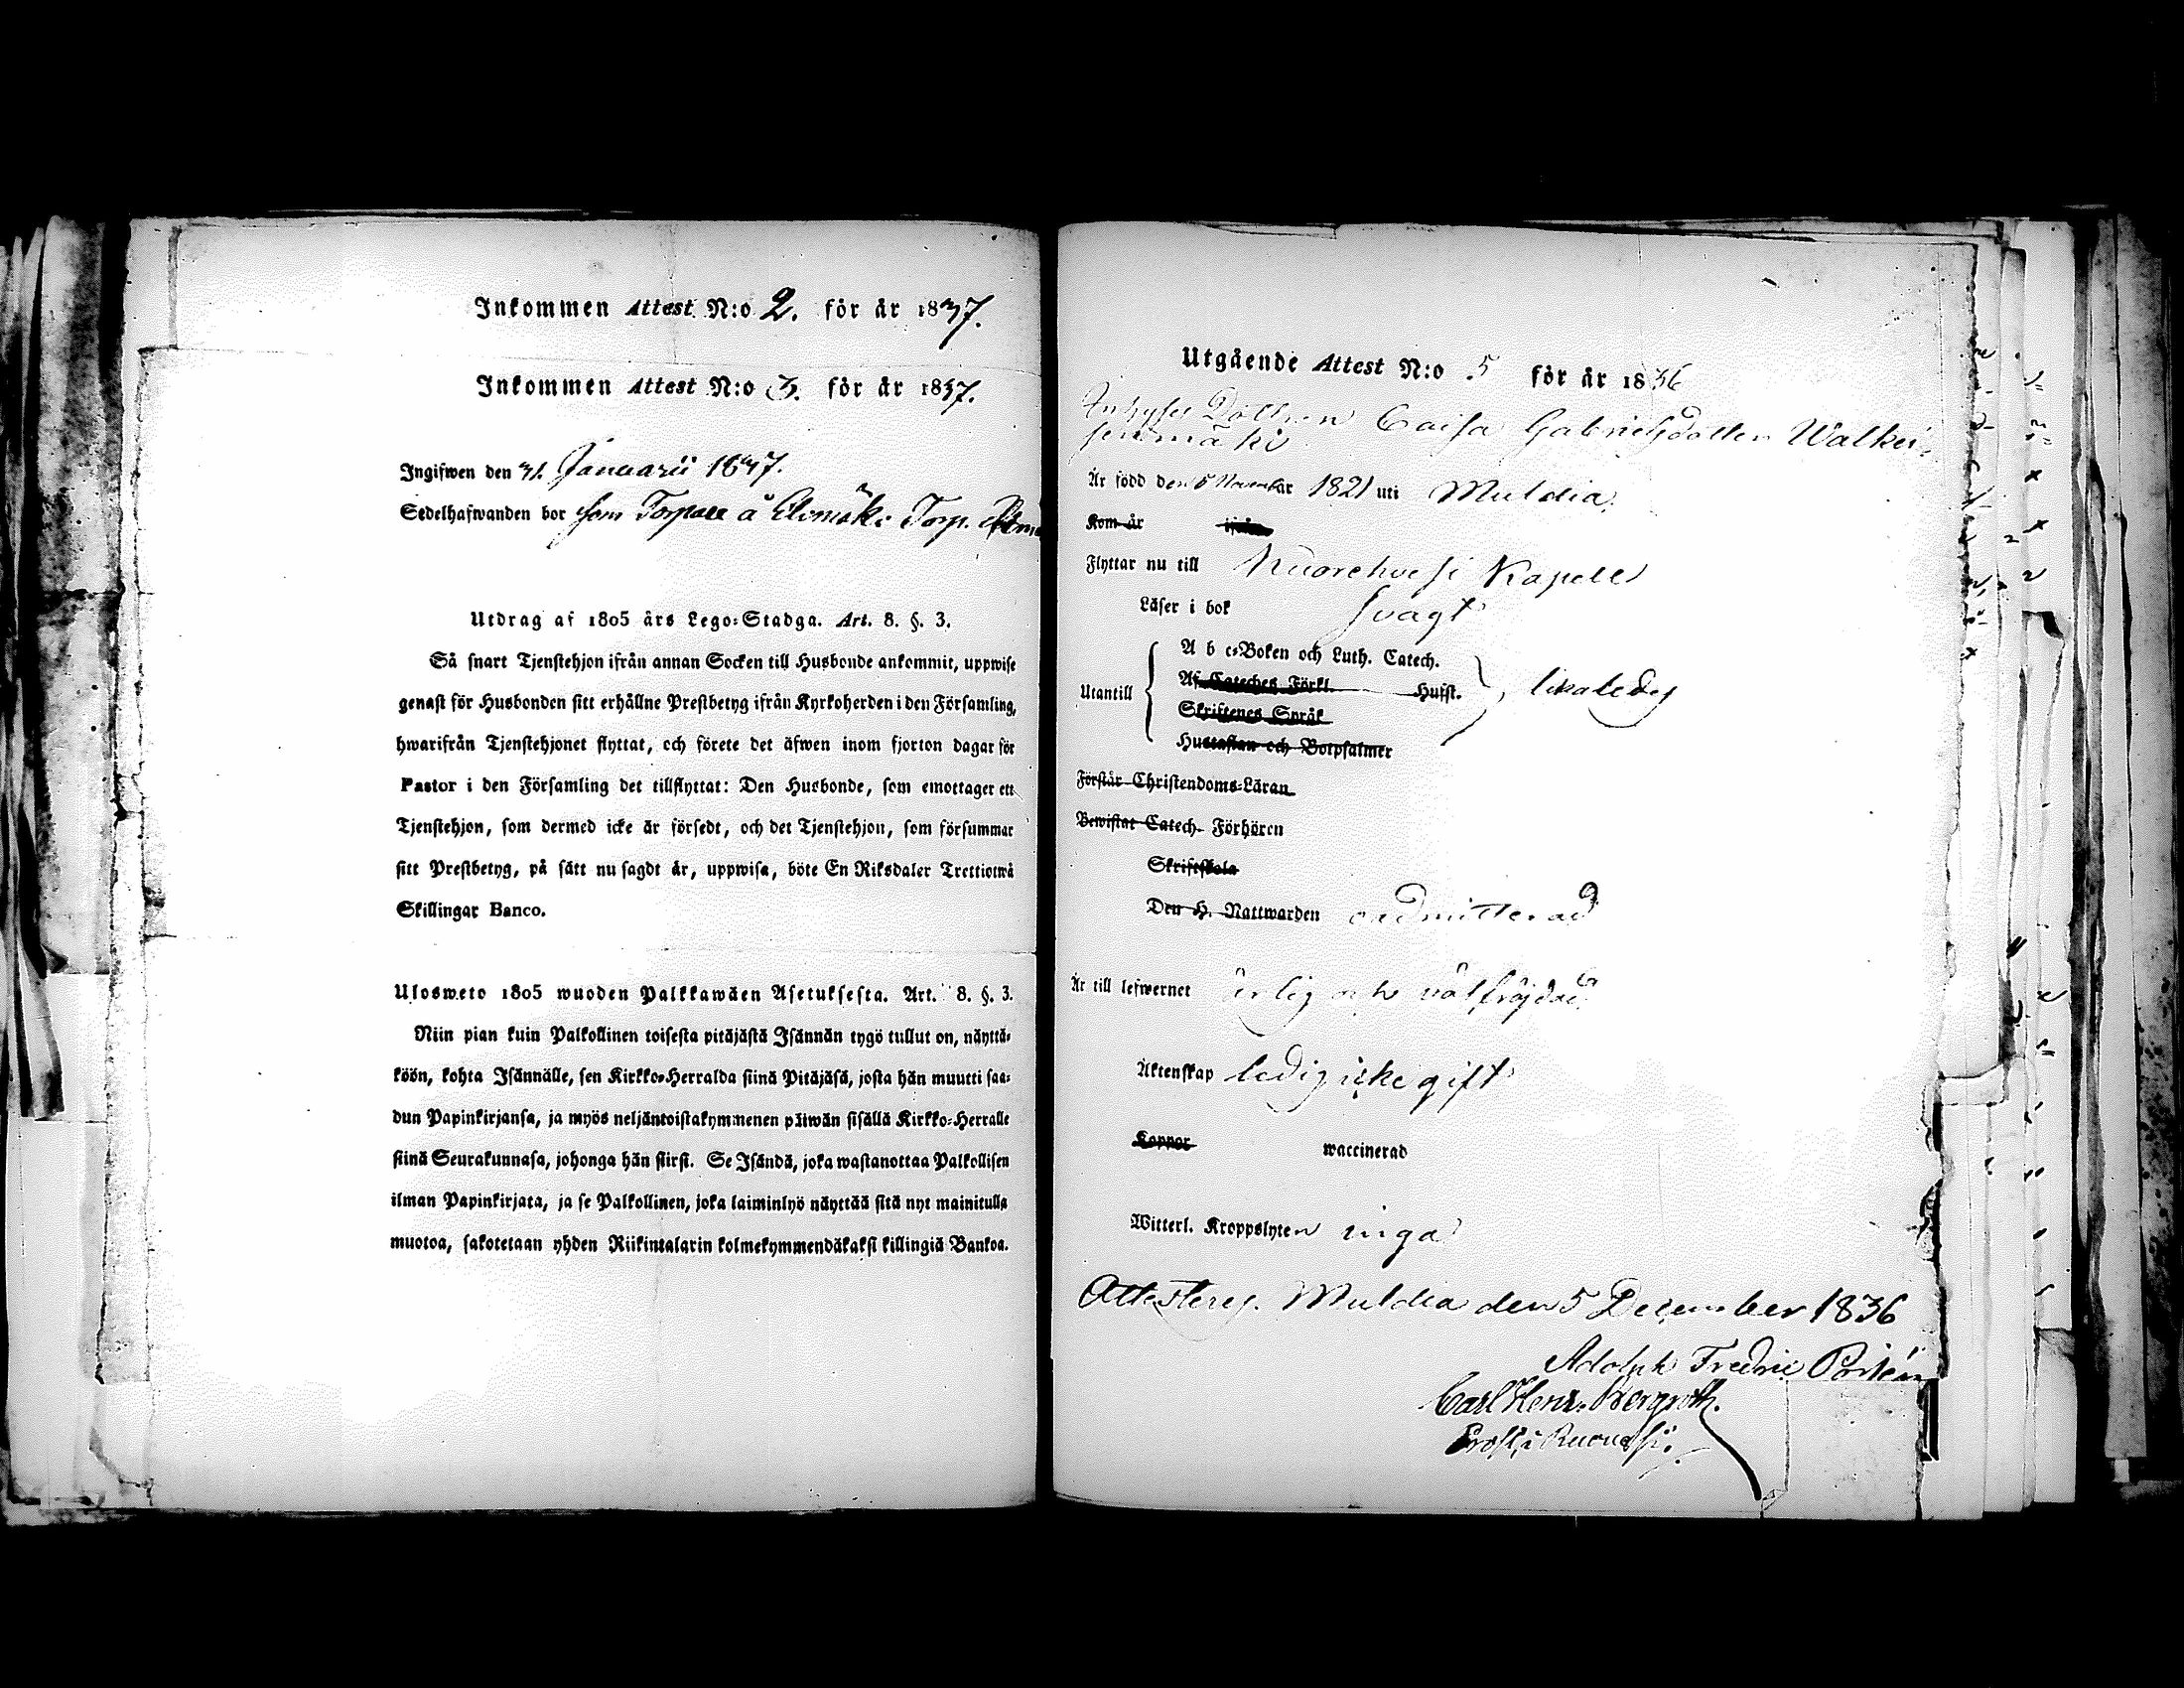 Inkommen Attest N:o 2. för år 1837.
Inkommen Attest N:o 3. för år 1837.
Ingifwen den 31. Januarii 1837.
Sedelhafwanden bor som Torpare å Elomäki Torp.
Utdrag af 1805 års Lego-Stadga. Art. 8. §. 3.
Så snart Tjenstehjon ifrån annan Socken till Husbonde ankommit, uppwise
genast för Husbonden sitt erhållne Prestbetyg ifrån Kyrkoherden i den Församling,
hwarifrån Tjenstehjonet flyttat, och förete det äfwen inom fjorton dagar för
Pastor i den Församling det tillflyttat: Den Husbonde, som emottager ett
Tjenstehjon, som dermed icke är försedt, och det Tjenstehjon, som försummar
sitt Prestbetyg, på sätt nu sagdt är, uppwisa, böte En Riksdaler Trettiotwå
Skillingar Banco.
Ulosweto 1805 wuoden Palkkawäen Asetuksesta. Art. 8. §. 3.
Niin pian kuin Palkollinen toisesta pitäjästä Isännän tygö tullut on, näyttä-
köön, kohta Isännälle, sen Kirkko-Herralda siinä Pitäjäsä, josta hän muutti saa-
dun Papinkirjansa, ja myös neljäntoistakymmenen päiwän sisällä Kirkko-Herralle
siinä Seurakunnasa, johonga hän siirsi. Se Isändä, joka wastanottaa Palkollisen
ilman Papinkirjata, ja se Palkollinen, joka laiminlyö näyttää sitä nyt mainitulla
muotoa, sakotetaan yhden Riikintalarin kolmekymmendäkaksi killingiä Bankoa.
Utgående Attest N:o 5 för år 1836
Inhyses Dottren Caisa Gabrielsdotter Walkei-
senmäki
Är född den 5 November 1821 uti Muldia.
Kom år ifrån
Flyttar nu till Kuorehvesi Kapell
Läser i bok svagt
A b c-Boken och Luth. Catech.
Utantill Af Cateches Förkl. Hufst. likaledes
Skriftenes Språk
Hustaflan och Botpsalmer
Förstår Christendoms-Läran
Bewistat Catech. Förhören
Skriftskola
Den H. Nattwarden oadmitterad
Är till lefwernet ärlig och välfräjdad
Äktenskap ledig icke gift
Koppor waccinerad
Witterl. Kroppslyten inga
Attesteras. Muldia den 5 December 1836
Adolph Fredric Portén
Carl Henr. Bergroth.
Prost i Ruovesi.